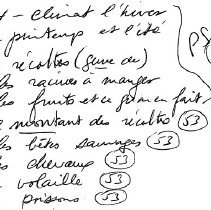 - climat l'hiver
printemps et l'été
récoltes (genre de)
les racines à manger
les fruits et ce qu'on en fait
le montant des récoltes (53)
les bêtes sauvages (53)
les chevaux (53)
volaille (53)
poissons (53)